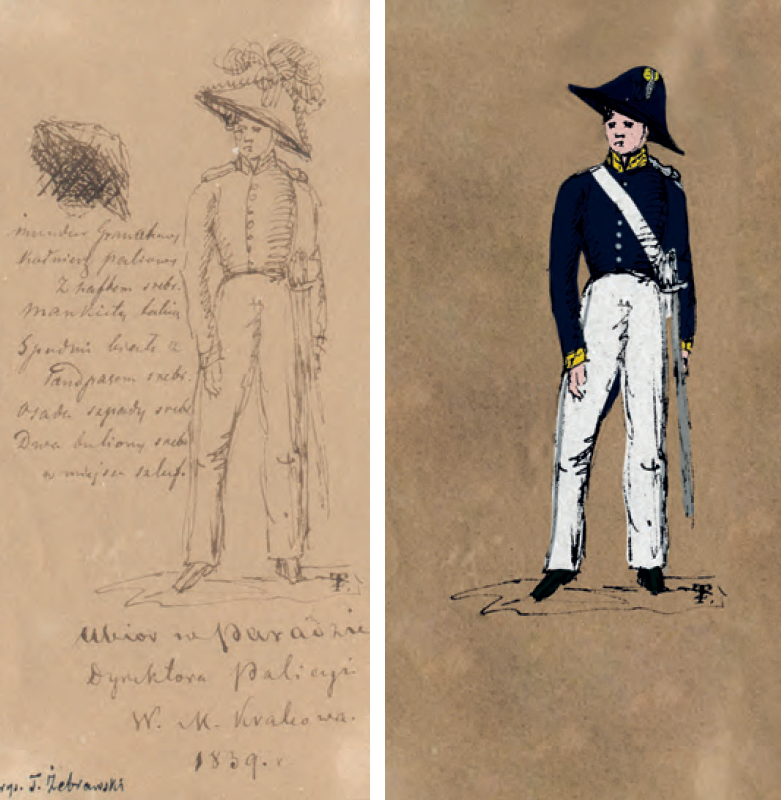 mundur Granatowy
kołnierz paliowy
z haftem srebr.
Mankiety
Spodnie białe z
srebr.
Osada szpady srebr.
Dwa buliony srebr.
w miejscu szlif.
TŻ.
Ubior w Paradzie
Dyrektora Policyi
W. M. Krakowa.
1839.
rys. T. Żebrawski
TŻ.